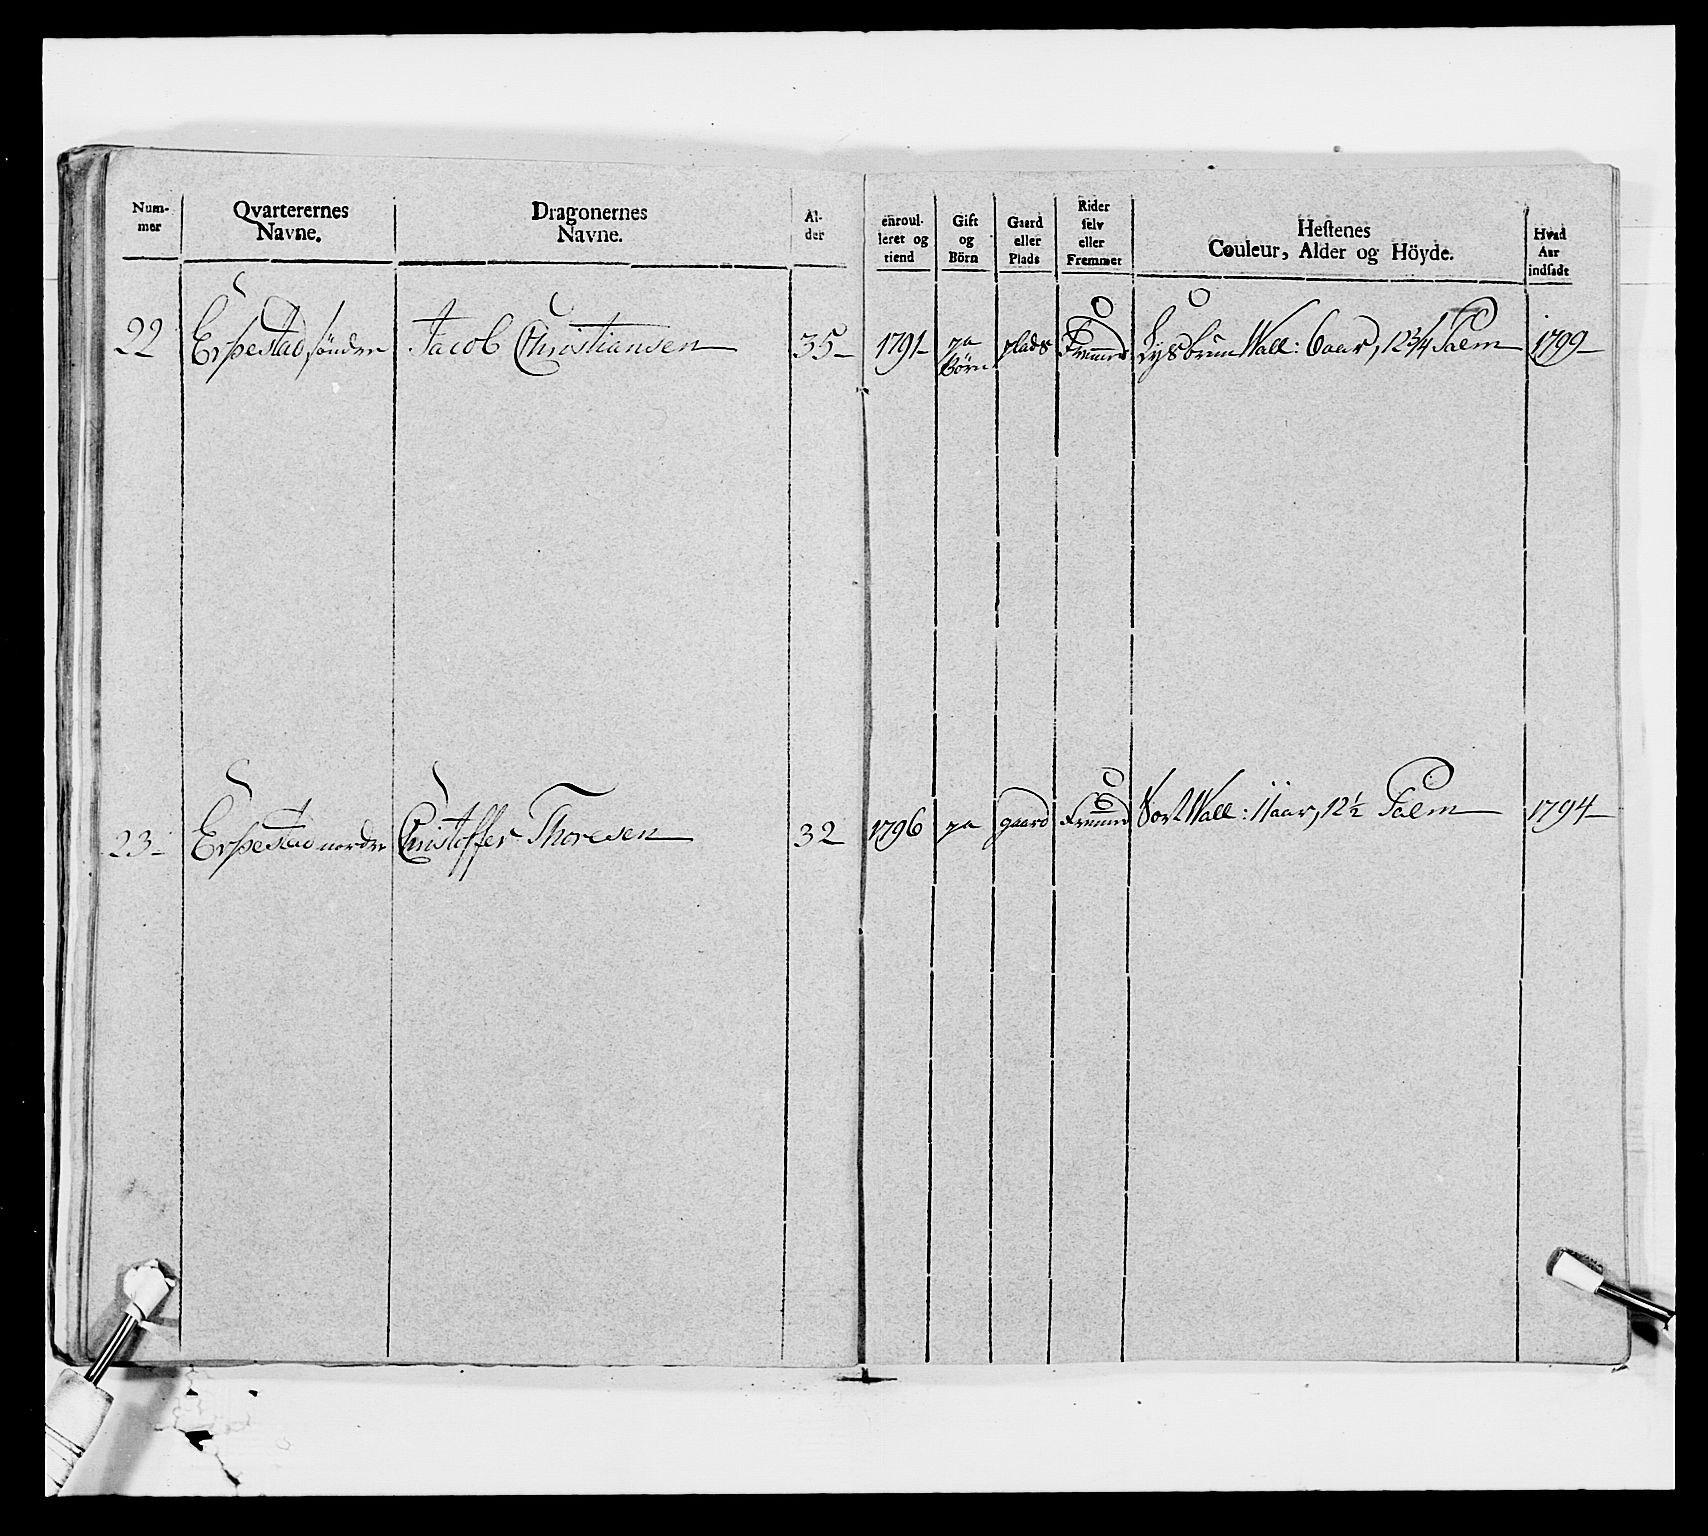 Num-
mer
Qvarterernes
Navne.
Dragonernes
Navne.
Al-
der
enroul-
leret og
tiend
Gift
og
Börn
Gaard
eller
Plads
Rider
selv
eller
Fremmet
Hestenes
Couleur, Alder og Höyde.
Hvad
Aar
indsadt
22 Erpestad, sønder Jacob Christiansen 35 1791 ja plads Fremmed Lysbrun Wall: 6 aar, 12 3/4 Palm 1799
Børn
23 Erpestad nordre Christoffer Thoresen 32 1796 ja gaard Fremmed Sort Wall: 11 aar, 12 ½ Palm 1794